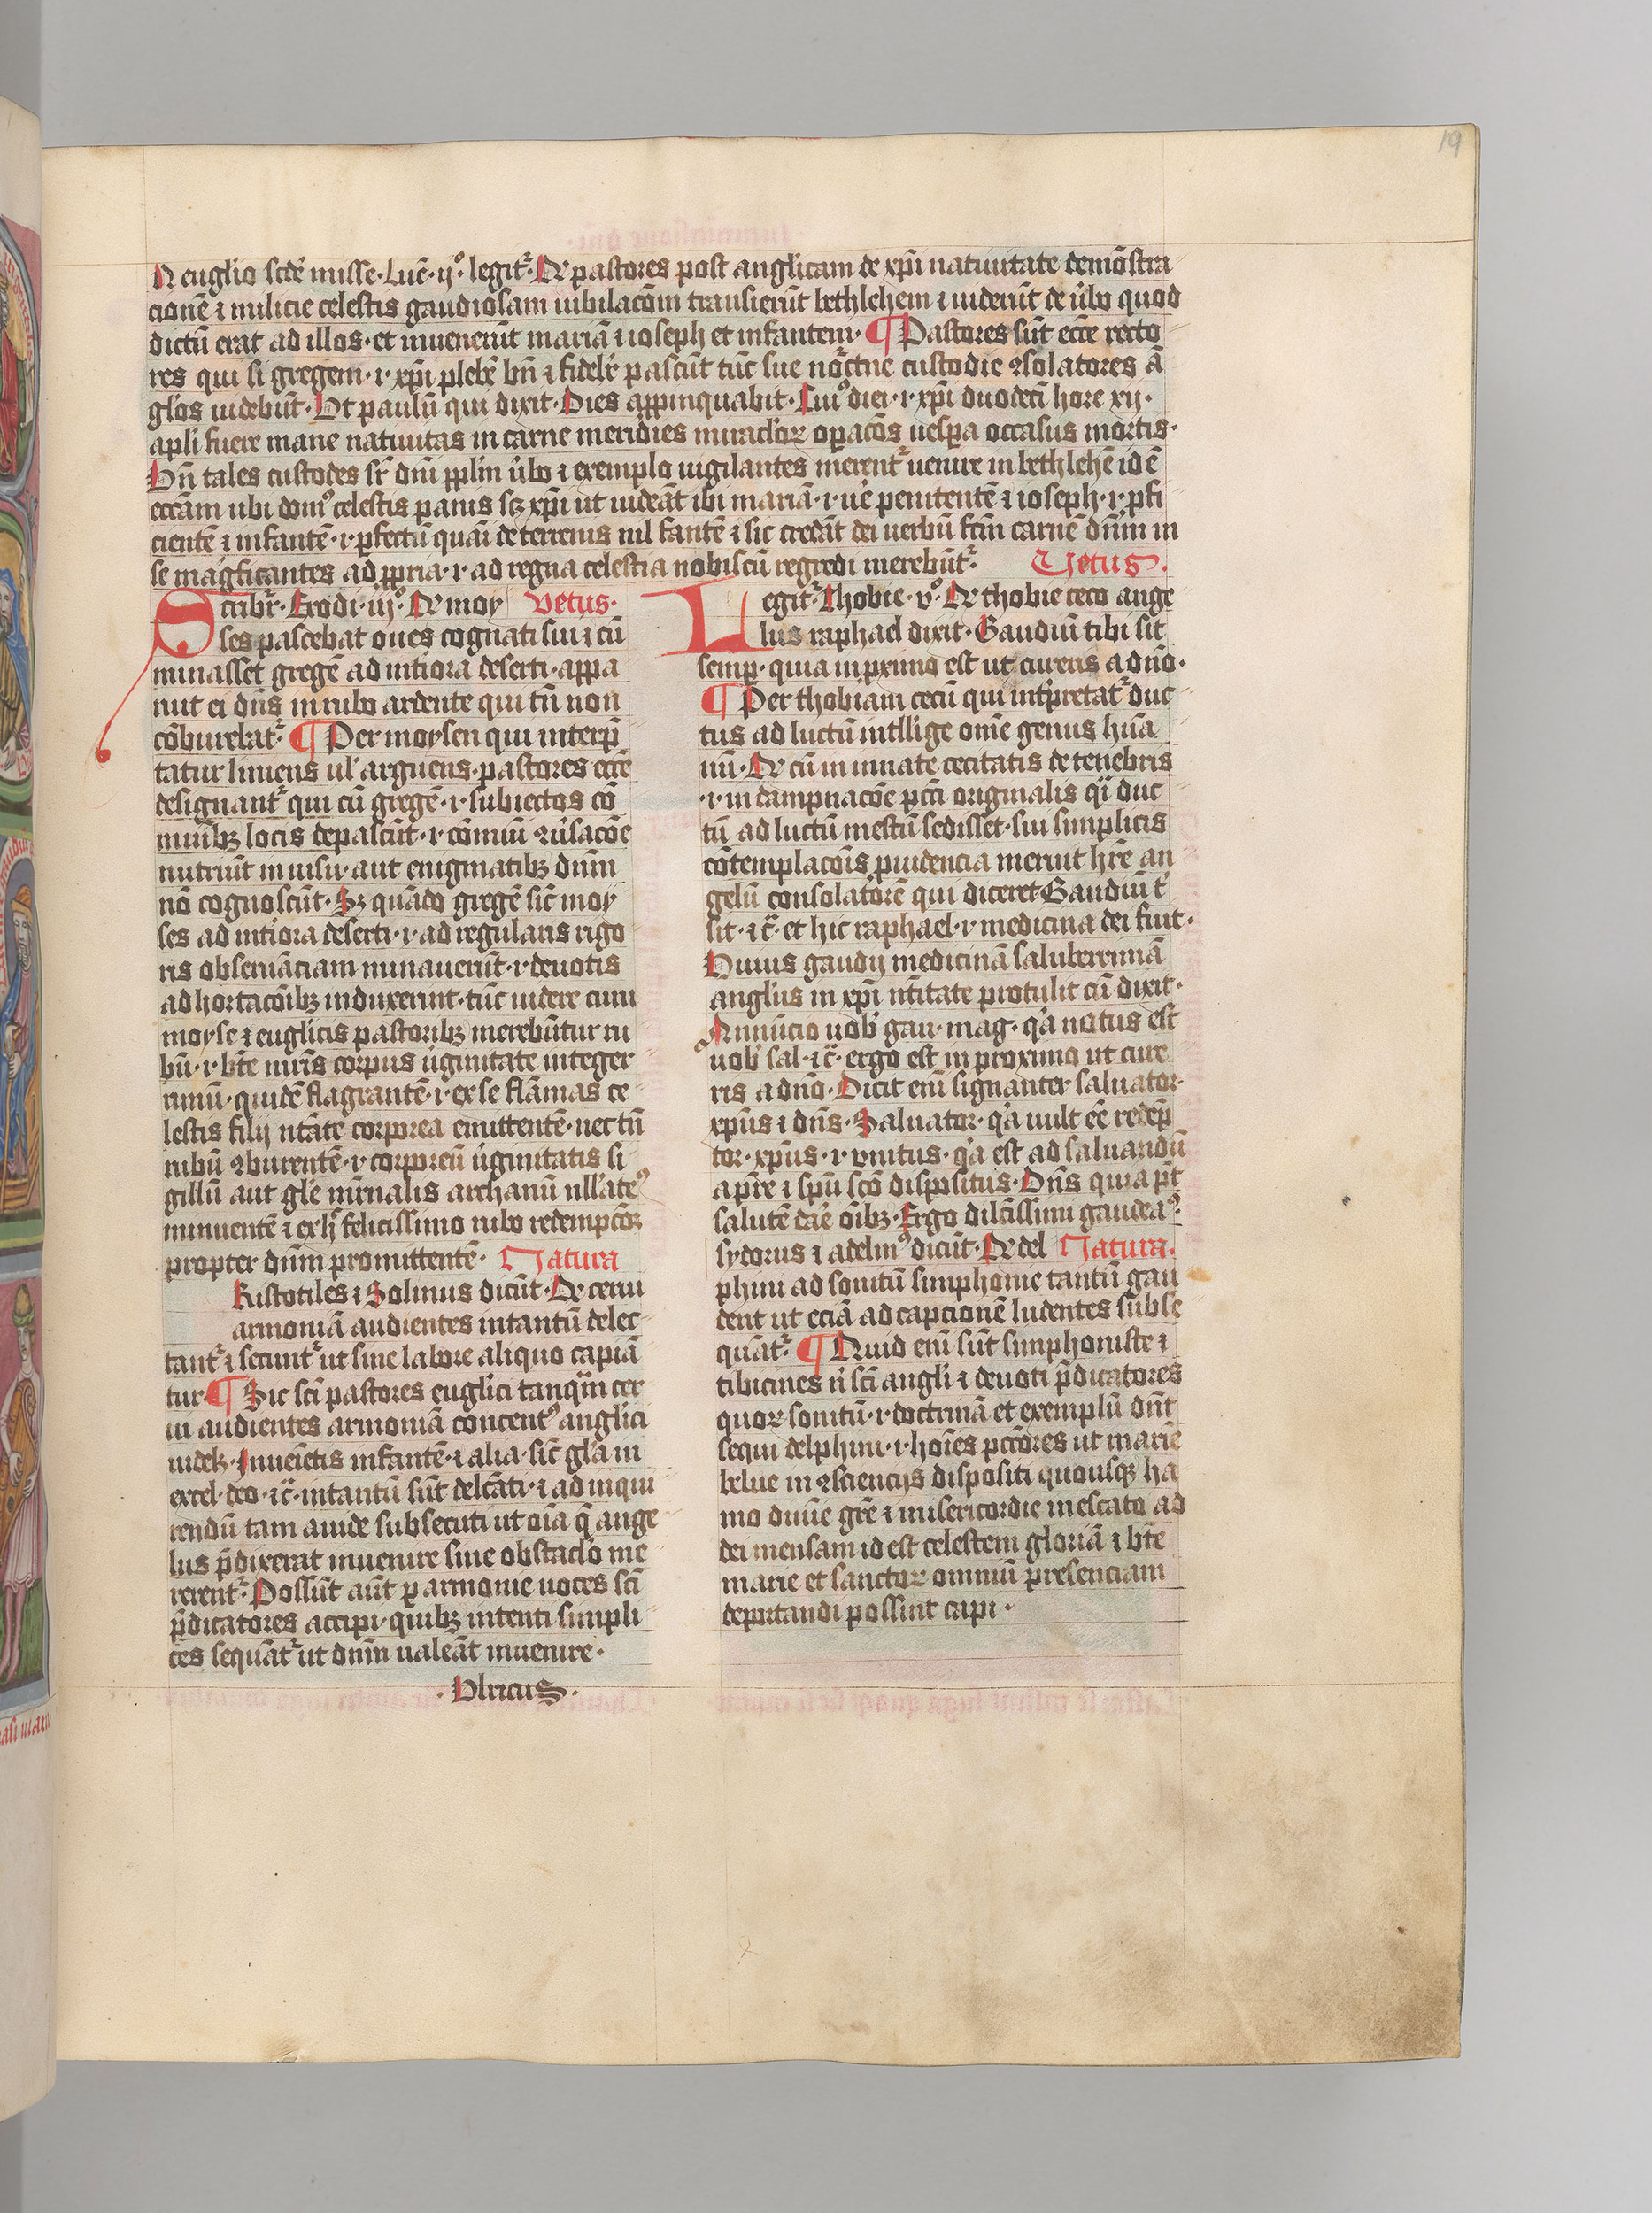 19
N euglio scde misse · Luc̄ · ij° · legit᷑ · Q pastores post anglicam de xp̄i natiuitate demōstra
cionē ⁊ milicie celestis gaudiosam iubilacōm transierūt bethlehem ⁊ uiderūt de ūbo quod
dictū erat ad illos · et inuenerūt mariā ⁊ ioseph et infantem · ¶ Pastores sūt ecc̄e recto
res qui si gregem · i · xp̄i plebē bn̄ ⁊ fidelr̄ pascūt tūc sue noctue custodie ꝯsolatores ā
glos uidebūt · Ut paulū qui dixit · Dies appinquabit · Cui⁹ diei · i · xp̄i duodeci hore xij ·
apli fuere mane natiuitas in carne meridies miraclōꝝ opacōs uespa occasus mortis ·
Bn̄ tales custodes sr̄ dn̄i pplm ūbo ⁊ exemplo uigilantes merent᷑ uenire in bethlehē id ē
eccām ubi dom⁹ celestis panis sꝫ xp̄i ut uideāt ibi mariā · i · uē penitentē ⁊ ioseph · i · pfi
cientē ⁊ infantē · i · pfectū quāi de terrenis nil fantē ⁊ sic credāt dei uerbū fc̄m carnē dn̄m in
se magficantes ad ppria · i · ad regna celestia nobiscū regredi merebūt᷑ · Vetus ·
Scribr̄ · Exodi · iij° · Q moy Vetus ·
ses pascebat oues cognati sui ⁊ cū
minasset gregē ad intiora deserti · appa
ruit ei dn̄s in rubo ardente qui tn̄ non
cōburebat᷑ · ¶ Per moysen qui interp̄
tatur liniens ul' arguens · pastores ecc̄e
designant᷑ qui cū gregē · i · subiectos cō
munibꝫ locis depascūt · i · cōmuni ꝯūsacōe
nutriūt in uisu · aut enigmatibꝫ dn̄m
nō cognoscūt · Sꝫ quādo gregē sic̄ moy
ses ad intiora deserti · i · ad regularis rigo
ris obseruāciam minauerūt · i · deuotis
ad hortacōibꝫ induxerint · tūc uidere cum
moyse ⁊ euglicis pastoribꝫ merebūtur ru
bū · i · bt̄e uirīs corpus ūginitate integer
rimū · quidē flagrantē · i · ex se flāmas ce
lestis filij ntāte corporea emittentē · nec tn̄
rubū ꝯburentē · i · corporeū ūginitatis si
gillū aut gl̄e uirīnalis archanū ullate⁹
minuentē ⁊ ex hͥ felicissimo rubo redempcōꝫ
propter dn̄m promittentē · Natura
Aristotiles ⁊ Solinus dicūt · Q cerui
armoniā audientes intantū delec
tant᷑ ⁊ seciunt᷑ ut sine labore aliquo capiā
tur · ¶ Sic sc̄i pastores euglici tanqͣm cer
ui audientes armoniā concent⁹ anglici
uidelꝫ · Inueietis infantē · ⁊ alia · sic̄ gl̄a in
excel · deo · ⁊c̄ · intantū sūt delcāti · ⁊ ad inqui
rendū tam auide subsecuti ut oīa q̄ ange
lus p̄dixerat inuenire sine obstaclō me
rerent᷑ · Possūt aūt p armonie uoces sc̄i
p̄dicatores accipi · quibꝫ intenti simpli
ces sequāt᷑ ut dn̄m ualeāt inuenire ·
· Ulricus ·
Legit᷑ · Thobie · v° · Q thobie ceco ange
lus raphael dixit · Gaudiū tibi sit
semp · quia in pximo est ut cureris a dn̄o ·
¶ Per thobiam cecū qui intp̄retat᷑ duc
tus ad luctū intllige om̄e genus hūa
nū · Q cū in innate cecitatis de tenebris
· i · in dampnacōe pcc̄i originalis qͣi duc
tū ad luctū mestū sedisset · sui simplicis
cōtemplacōis prudencia meruit hr̄e an
gelū consolatorē qui diceret Gaudiū t'
sit · ⁊c̄ · et hic raphael · i · medicina dei fuit ·
Huius gaudij medicinā saluberrimā
anglus in xp̄i ntītate protulit cū dixit ·
Annūcio uob' gau · mag · qͣa natus est
uob' sal · ⁊c̄ · ergo est in proximo ut cure
ris a dn̄o · Dicit enī signanter saluator ·
xp̄us ⁊ dn̄s · Saluator · qͣa uult eē redēp
tor · xp̄us · i · vnitus · qͣa est ad saluandū
a pr̄e ⁊ spū scō dispositus · Dn̄s quia pt̄
salutē dāe oībꝫ · Ergo dilcīssimi gaudea⁹ ·
sydorus ⁊ adelin⁹ dicūt · Q del Natura ·
phini ad sonitū simphonie tantū gau
dent ut eciā ad capcionē ludentes subse
quāt᷑ · ¶ Quid enī sūt simphoniste ⁊
tibicines n̄ sc̄i angli ⁊ deuoti p̄dicatores
quoꝝ sonitū · i · doctrinā et exemplū dn̄t
sequi delphini · i · hoīes pctōres ut marie
belue in ꝯsciencijs dispositi quousqꝫ ha
mo diuīe gr̄e ⁊ misericordie inescato ad
dei mensam id est celestem gloriā ⁊ bt̄e
marie et sanctoꝝ omniū presenciam
deportandi possint capi ·